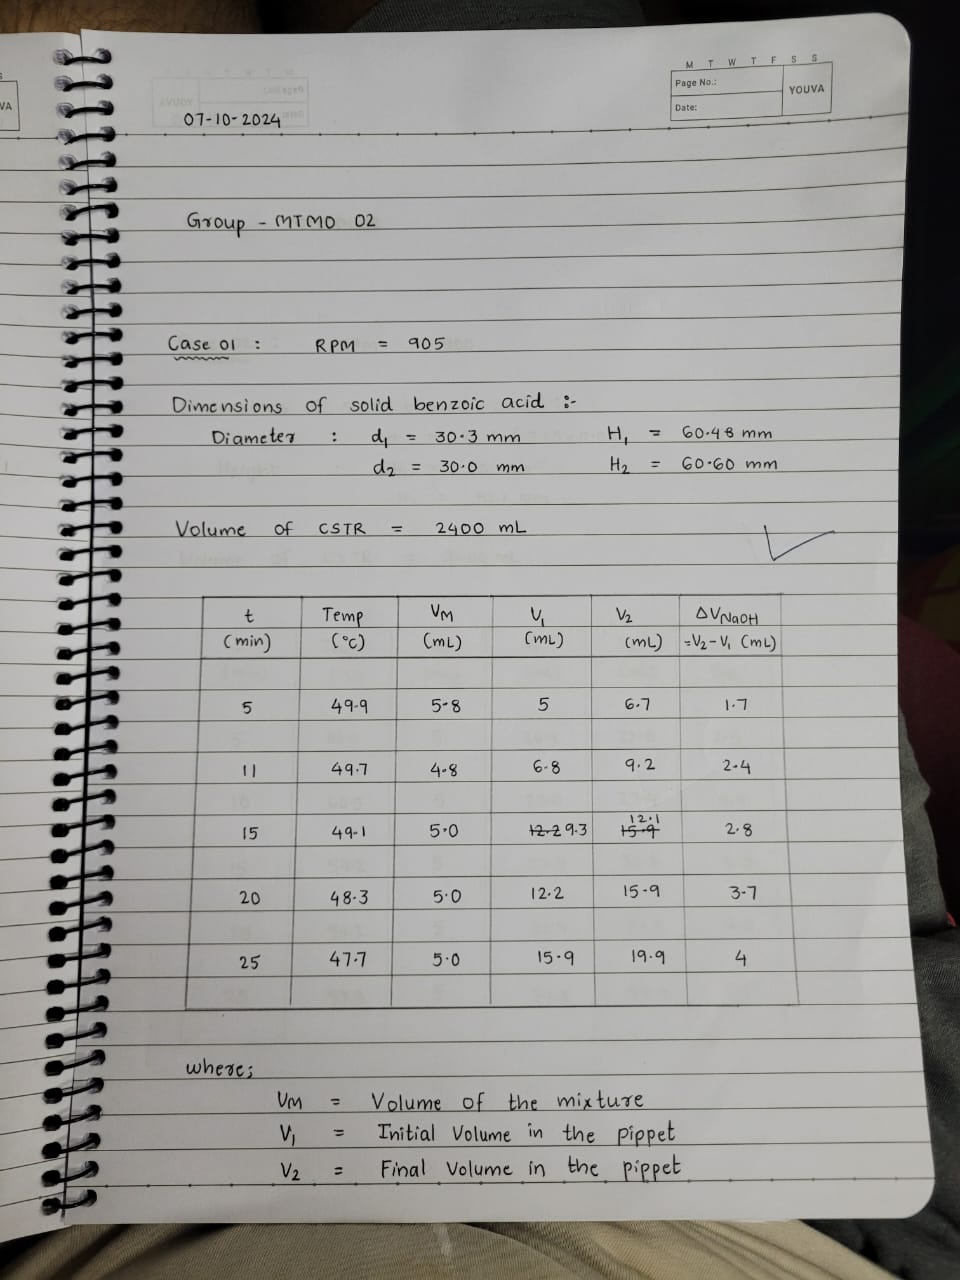 M T W T F S S
Page No.:
YOUVA
Date:
VA
07-10-2024
Group - MTMO 02
Case 01 : RPM = 905
Dimensions of solid benzoic acid :-
Diameter : d1 = 30.3 mm H1 = 60.48 mm
d2 = 30.0 mm H2 = 60.60 mm
Volume of CSTR = 2400 mL
t Temp VM V1 V2 ΔVNaOH
(min) (°C) (mL) (mL) (mL) =V2-V1 (mL)
5 49.9 5.8 5 6.7 1.7
11 49.7 4.8 6.8 9.2 2.4
12.1
15 49.1 5.0 12.2 9.3 15.9 2.8
20 48.3 5.0 12.2 15.9 3.7
25 47.7 5.0 15.9 19.9 4
where;
VM = Volume of the mixture
V1 = Initial Volume in the pippet
V2 = Final Volume in the pippet